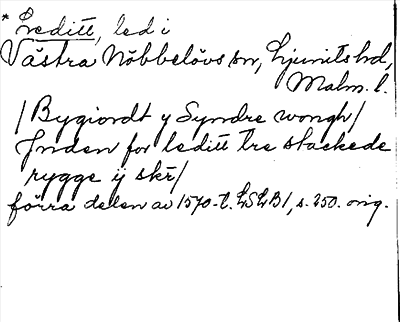 * Leditt, led i
Västra Nöbbelövs sn, Ljunits hd,
Malm. l.
/Bygiordt y Syndre wongh/
Jnden for leditt tre stackede
rygge ij skr/
förra delen av 1570-t. LSLB1, s. 250. orig.